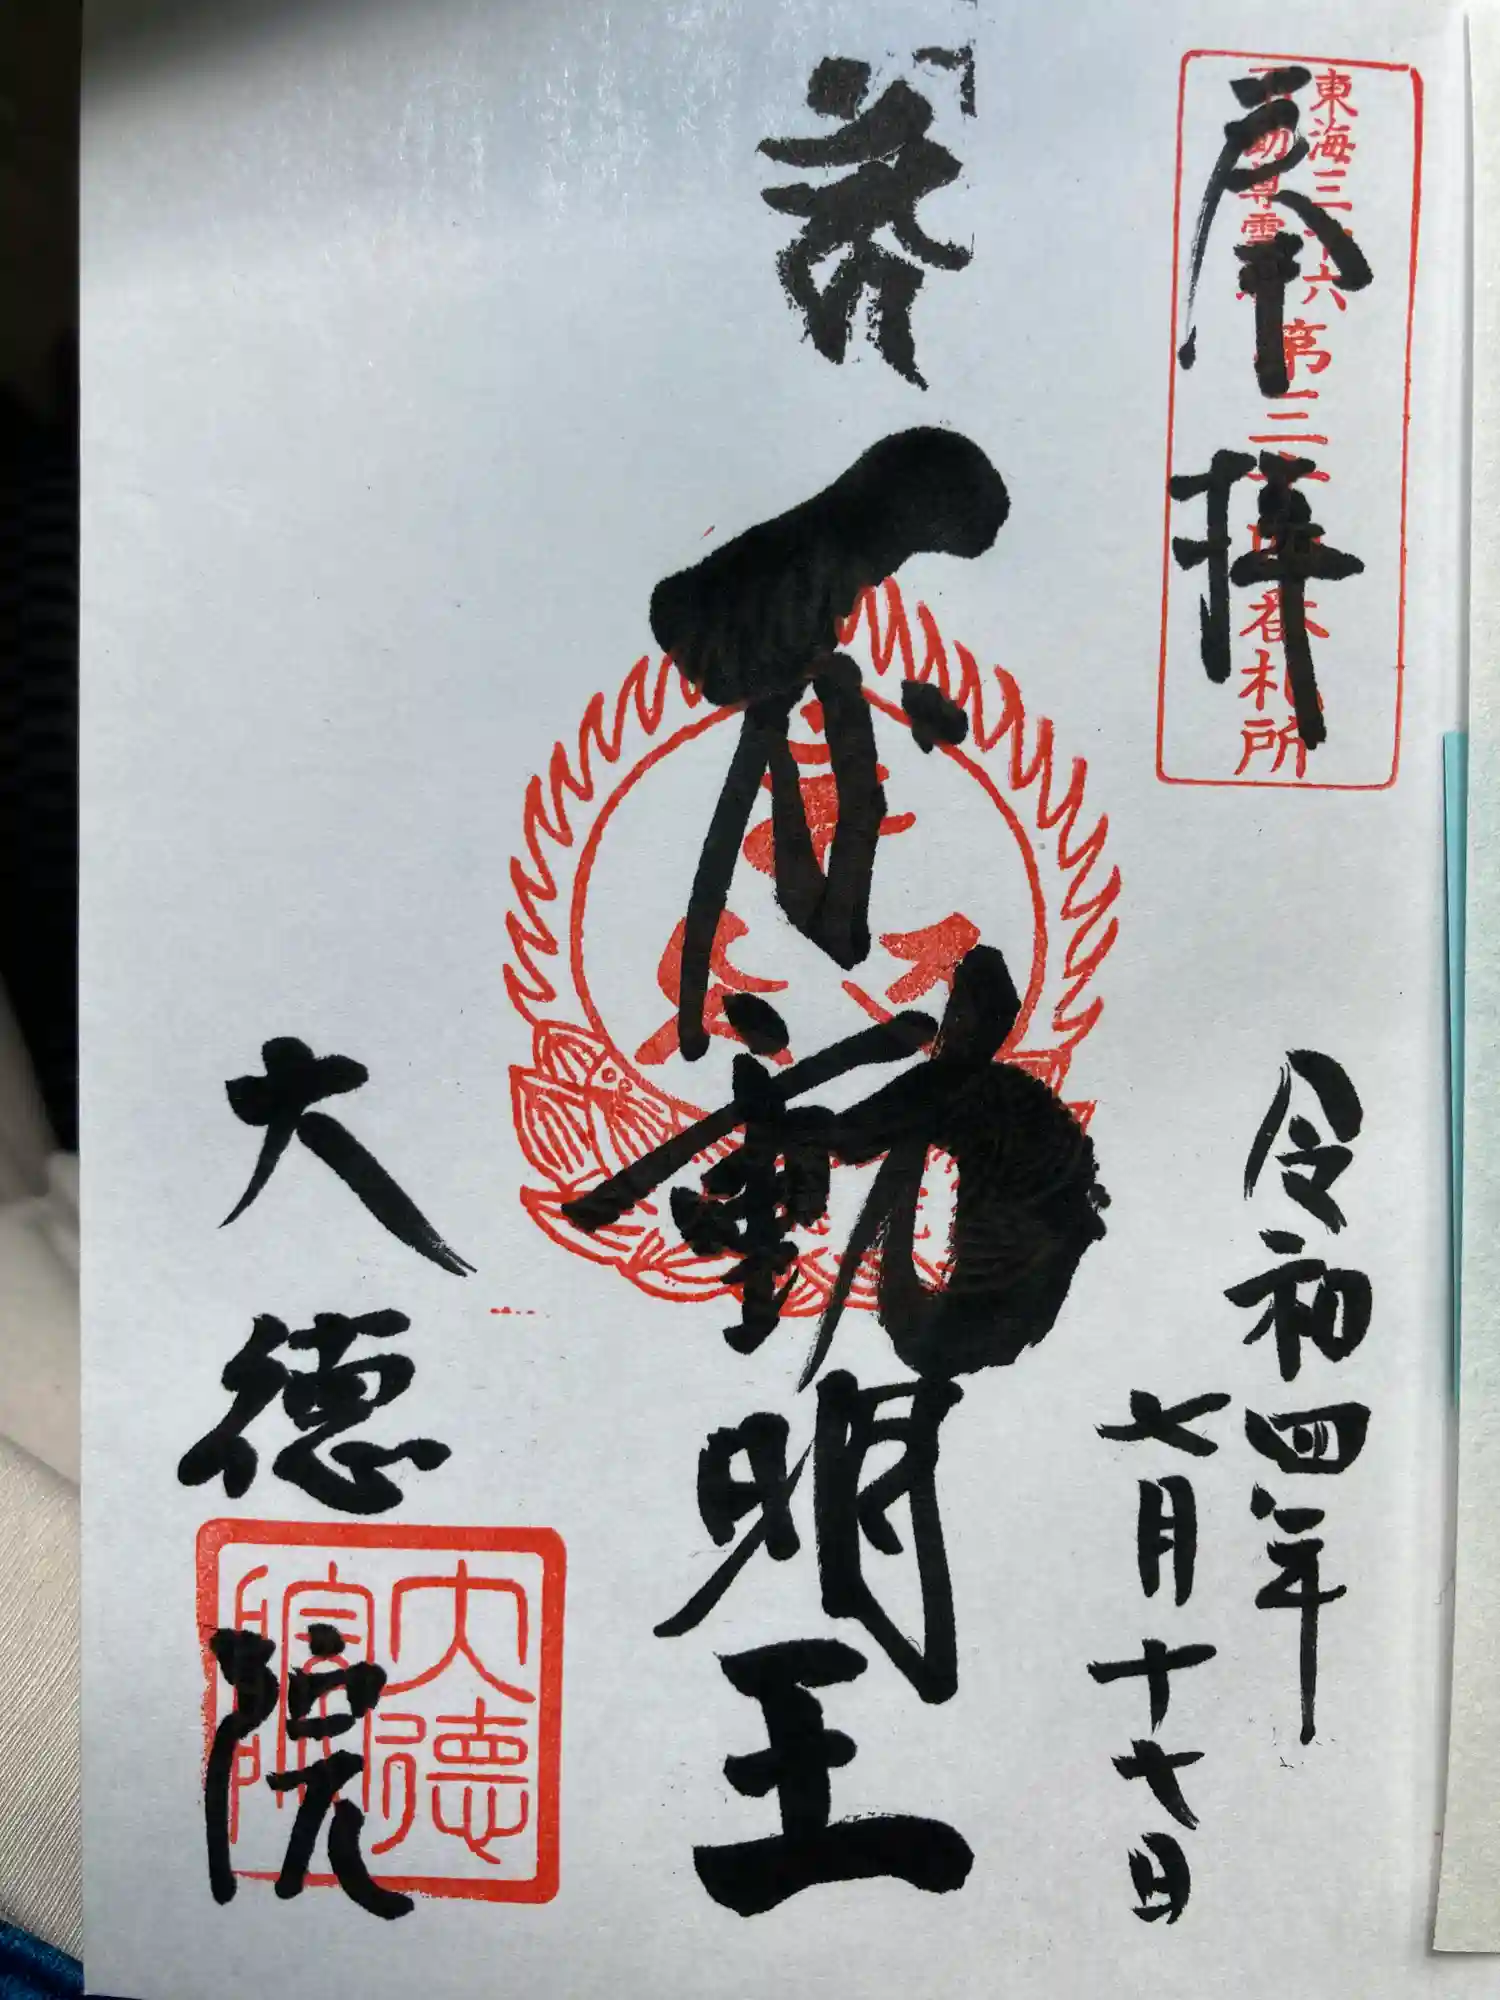 東海三十六
不動尊霊場
第三十四番札所
奉拝
令和四年
七月十七日
不動明王
大徳院
大德
院